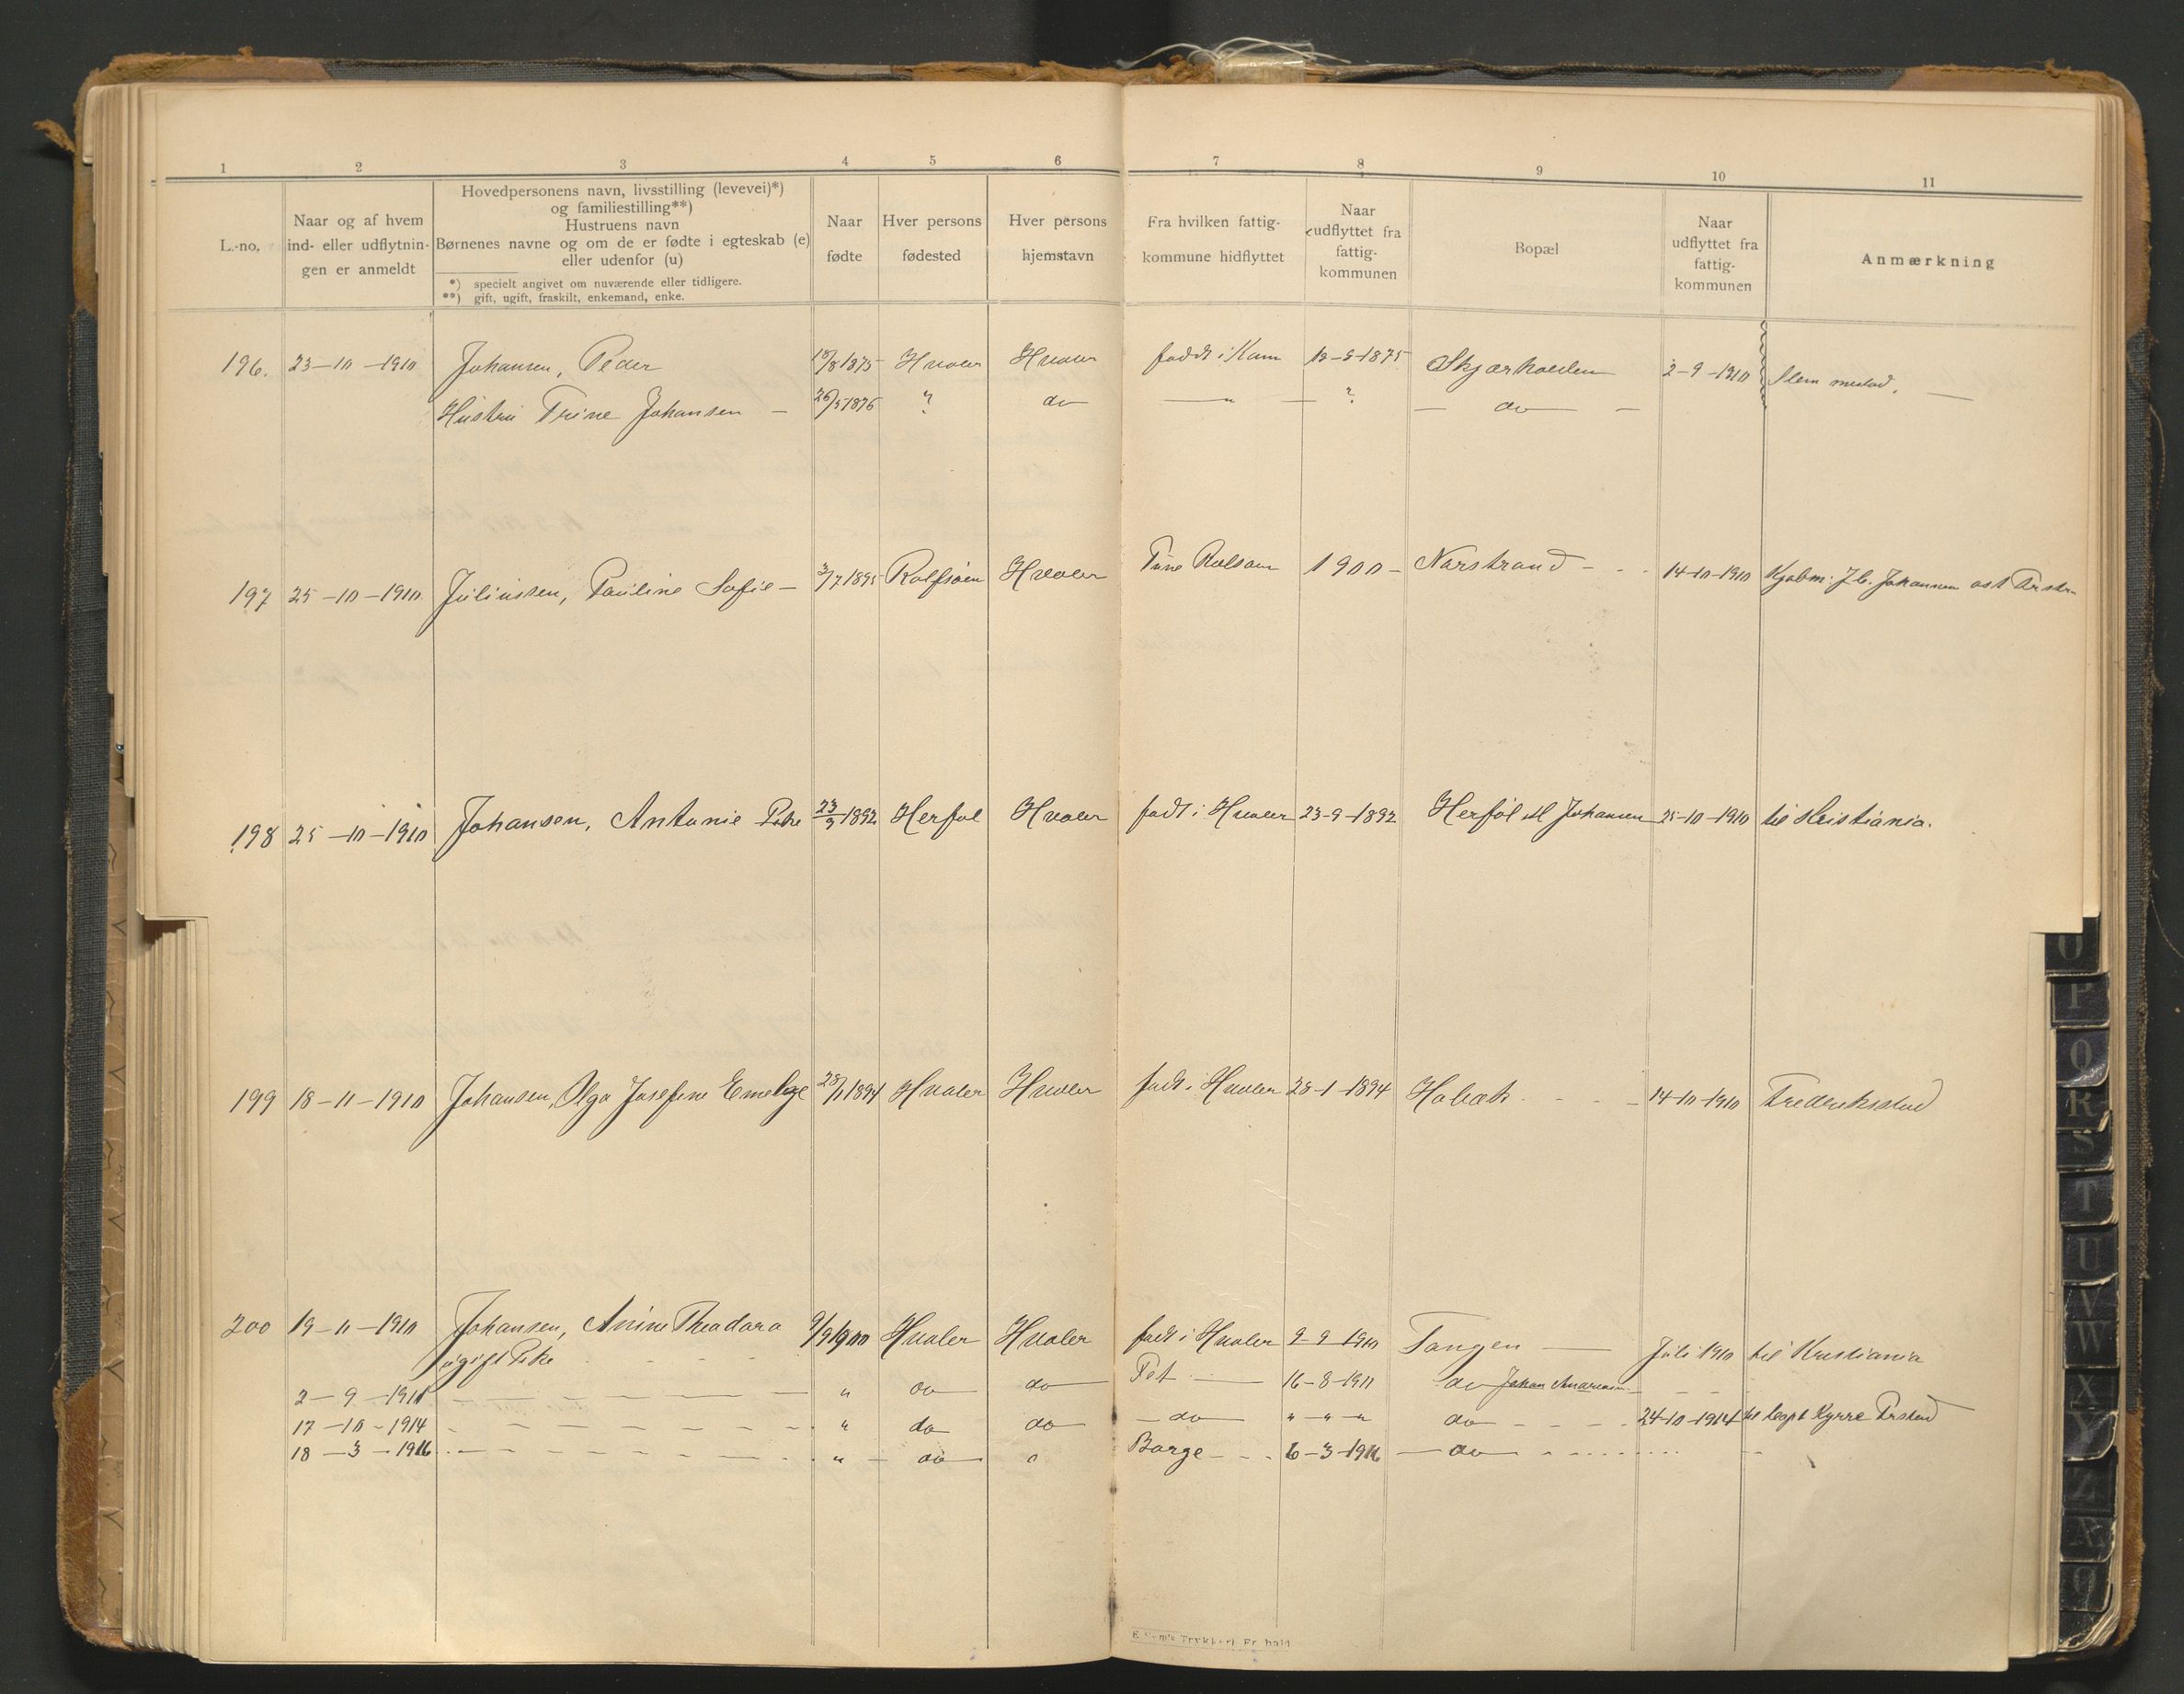 1 2 3 4 5 6 7 8 9 10 11
L.-no.
Naar og af hvem
ind- eller udflytnin-
gen er anmeldt
Hovedpersonens navn, livsstilling (levevei)*)
og familiestilling**)
Hustruens navn
Børnenes navne og om de er fødte i egteskab (e)
eller udenfor (u)
*) specielt angivet om nuværende eller tidligere.
**) gift, ugift, fraskilt, enkemand, enke.
Naar
fødte
Hver persons
fødested
Hver persons
hjemstavn
Fra hvilken fattig-
kommune hidflyttet
Naar
udflyttet fra
fattig-
kommunen
Bopæl
Naar
udflyttet fra
fattig-
kommunen
Anmærkning
196. 23-10-1910 Johansen, Peder Hvaler Hvaler Skjærhalden 2-9-1910
Hustru Trine Johansen — 26/5 1876 " do — " — " — do —
197 25-10-1910 Juliussen, Pauline Sofie — 3/7 1895 Rolfsøen Hvaler Tune 1900 — Nordstrand - - 14-10-1910 Johannesen
198 25-10-1910 Johansen, Antonie Pike 23/9 1892 Herføl Hvaler født i Hvaler 23-9-1892 Herføl M Johansen 25-10-1910 til Kristiania.
199 18-11-1910 Johansen, Olga Josefine 28/1 1894 Hvaler Hvaler født i Hvaler 28-1-1894 14-10-1910 Frederiksstad
200 19-11-1910 Johansen, Anine Theodora 9/9 1900 Hvaler Hvaler født i Hvaler 9-9-1910 Tangen — Juli 1910 til Kristiania
ugift Pike
2-9-1911 " do do 16-8-1911 do Johan
17-10-1914 " do do - do " - " - " do 24-10-1914 til Kyrre
18-3-1916 " do " Borge 6-3-1916 — do
O
P
Q
R
S
T
U
V W
X
Y
Z